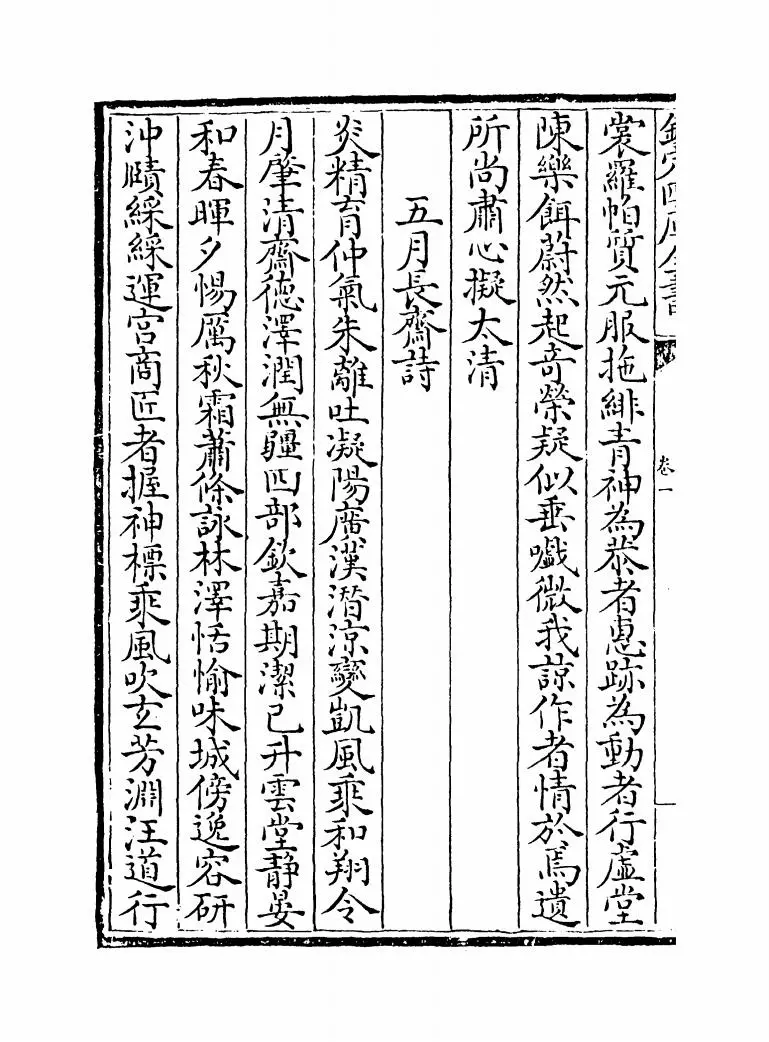 欽定四庫全書 卷一
裳羅帕質元服拖緋青神為恭者惠跡為動者行虛堂
陳樂餌蔚然起奇榮疑似垂嚱微我諒作者情於焉遺
所尚肅心擬太清
五月長齋詩
炎精育仲氣朱離吐凝陽廣漢潛涼變凱風乘和翔令
月肇清齋德澤潤無疆四部欽嘉期潔已升雲堂静晏
和春暉夕惕厲秋霜蕭條詠林澤恬愉味城傍逸容研
沖賾綵綵運宫商匠者握神標乘風吹玄芳淵汪道行